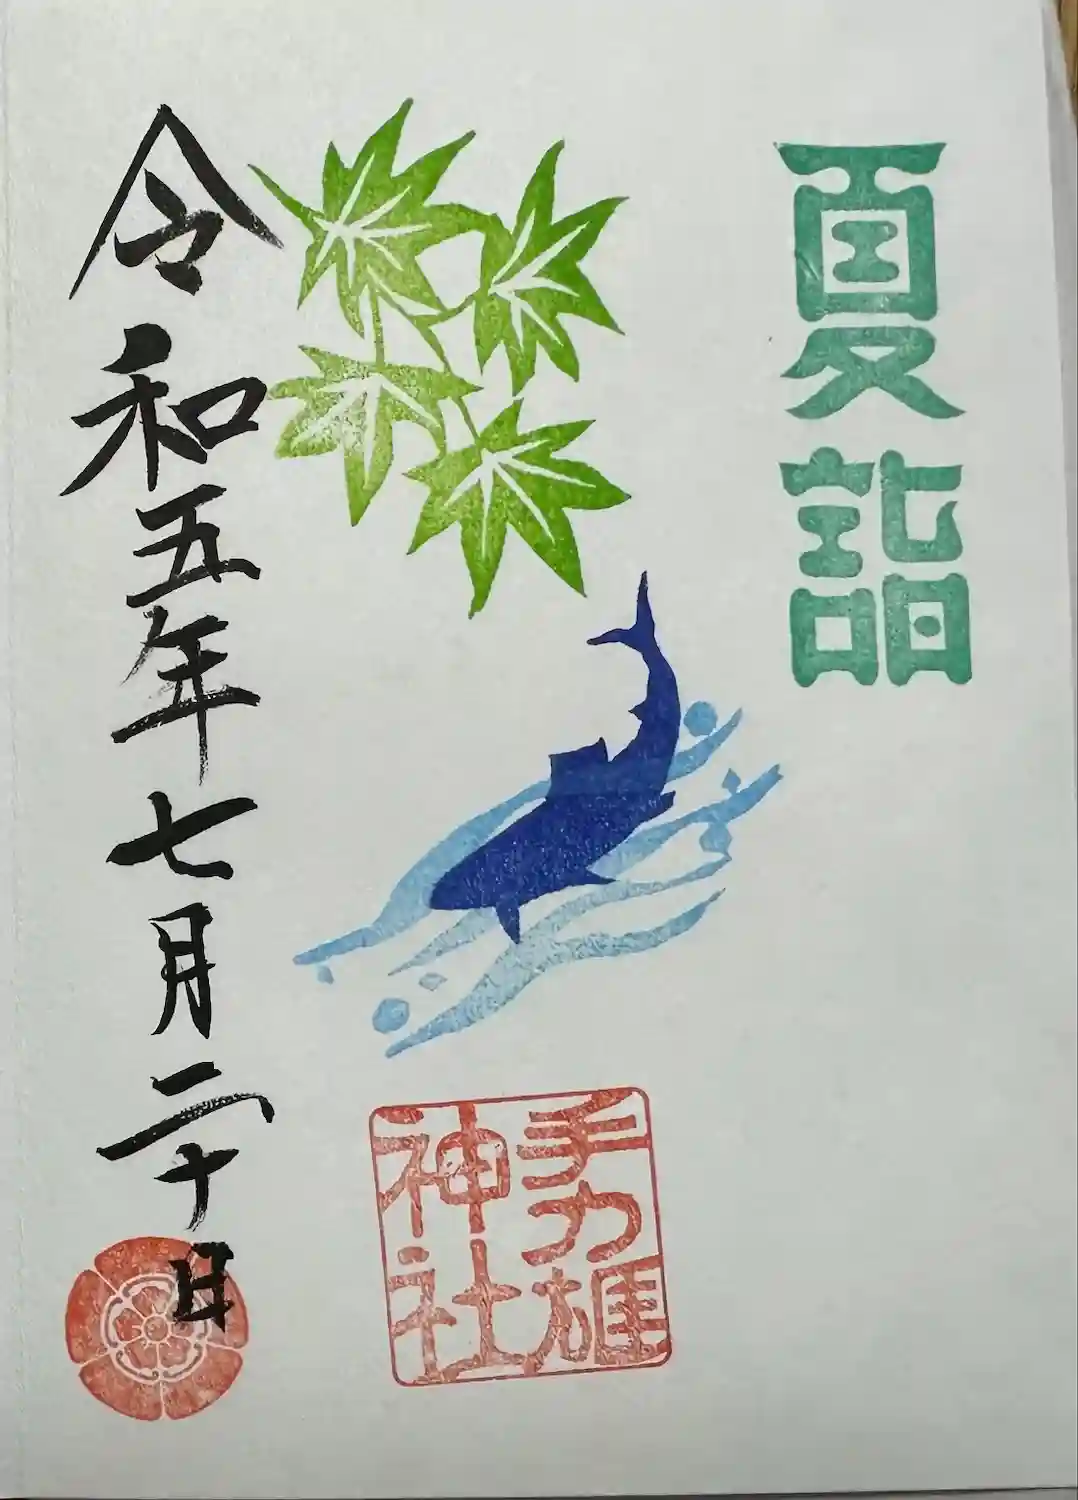 夏詣
手力雄
神社
令和五年七月二十日